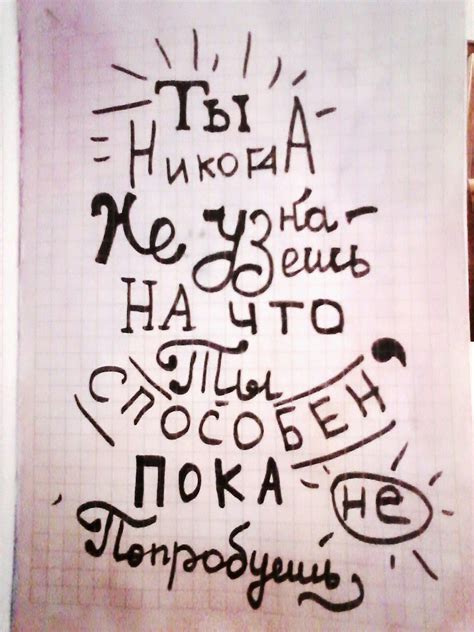 Ты
Никогда
Не узна-
ешь
на что
Ты
способен,
пока не
Попробуешь